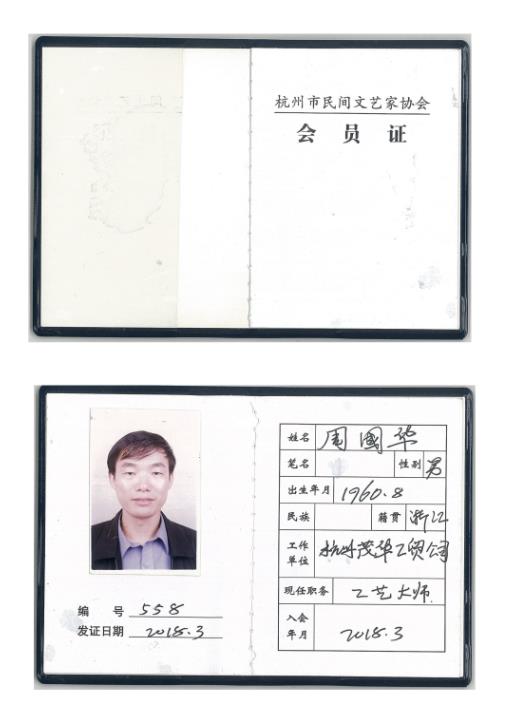 杭州市民间文艺家协会
会员证
姓名 周國华
笔名 性别 男
出生年月 1960.8
民族 籍贯 浙江
工作单位 杭州茂华工贸公司
现任职务 工艺大师
入会年月 2018.3
编号 558
发证日期 2018.3